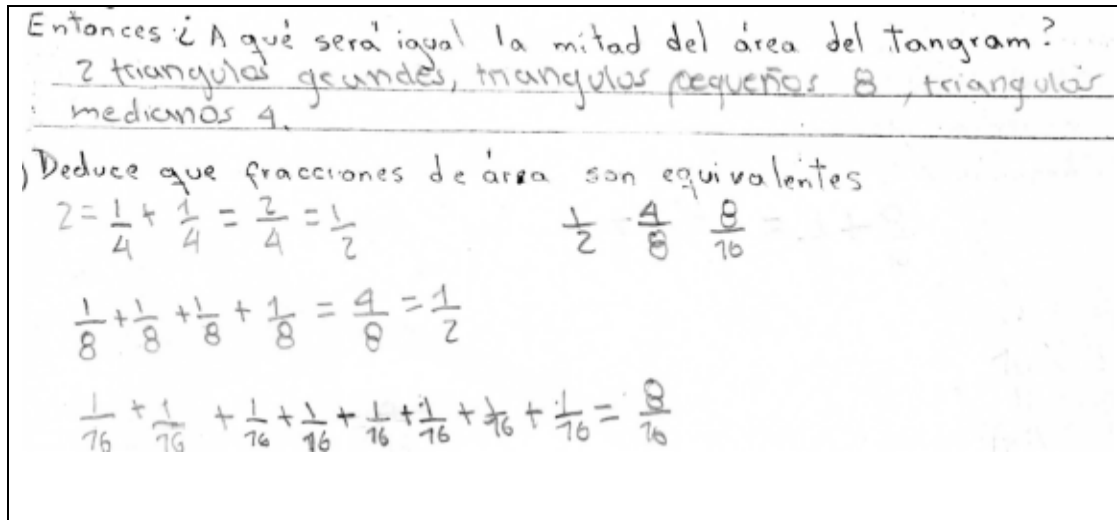 Entonces ¿ A qué será igual la mitad del área del Tangram?
2 triangulos grandes, triangulos pequeños 8, triangulos
medianos 4.
) Deduce que fracciones de área son equivalentes
2 = 1/4 + 1/4 = 2/4 = 1/2    1/2 4/8 8/16
1/8 + 1/8 + 1/8 + 1/8 = 4/8 = 1/2
1/16 + 1/16 + 1/16 + 1/16 + 1/16 + 1/16 + 1/16 + 1/16 = 8/16